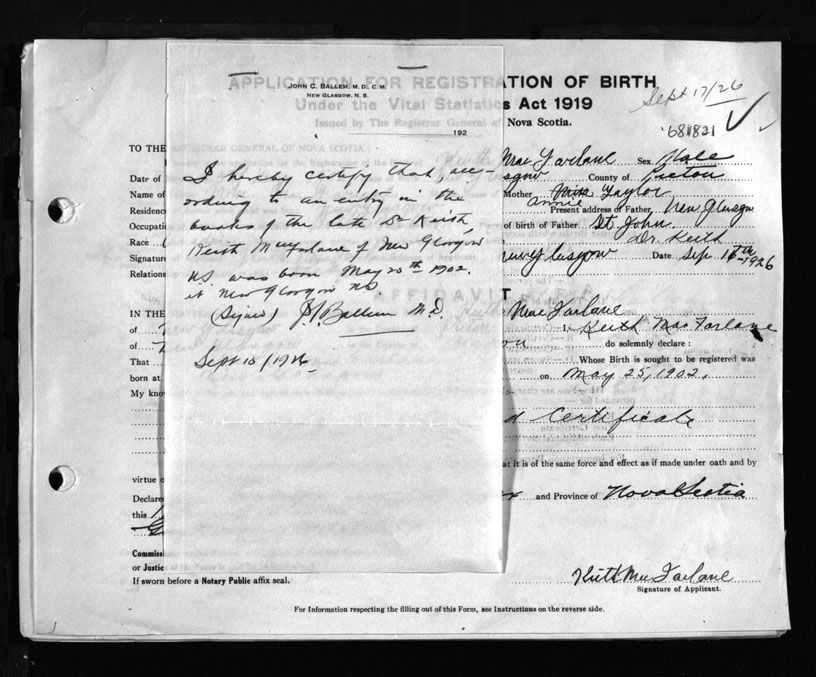 APPLICATION FOR REGISTRATION OF BIRTH
Under the Vital Statistics Act 1919
Issued by The Registrar General of Nova Scotia.
Sept 17/26
681821
JOHN C. BALLEM, M.D., C.M.
NEW GLASGOW, N. S.
192
I hereby certify that, acc-
ording to an entry in the
books of the late Dr Keith,
Keith MacFarlane of New Glasgow
NS was born May 25th 1902.
at New Glasgow NS
(Signed) Ballem M.D.
Sept 10/1926
TO THE REGISTRAR GENERAL OF NOVA SCOTIA:
Mac Farlane Sex Male
Date of
sgow County of Pictou
Name of
Mother Miss Taylor
Annie
Residence
Present address of Father, New Glasgow
Occupati
of birth of Father St John
Race
Dr. Keith
Signature
Date Sep. 1926
Relations
AFFIDAVIT
IN THE
Mac Farlane
of
I, Keith MacFarlane
of
do solemnly declare:
That
Whose Birth is sought to be registered was
born at
on May 25, 1902.
My kno
d Certificate
at it is of the same force and effect as if made under oath and by
virtue o
Declare
and Province of Nova Scotia
this
Commissi
or Justic
If sworn before a Notary Public affix seal.
Keith MacFarlane
Signature of Applicant.
For Information respecting the filling out of this Form, see Instructions on the reverse side.